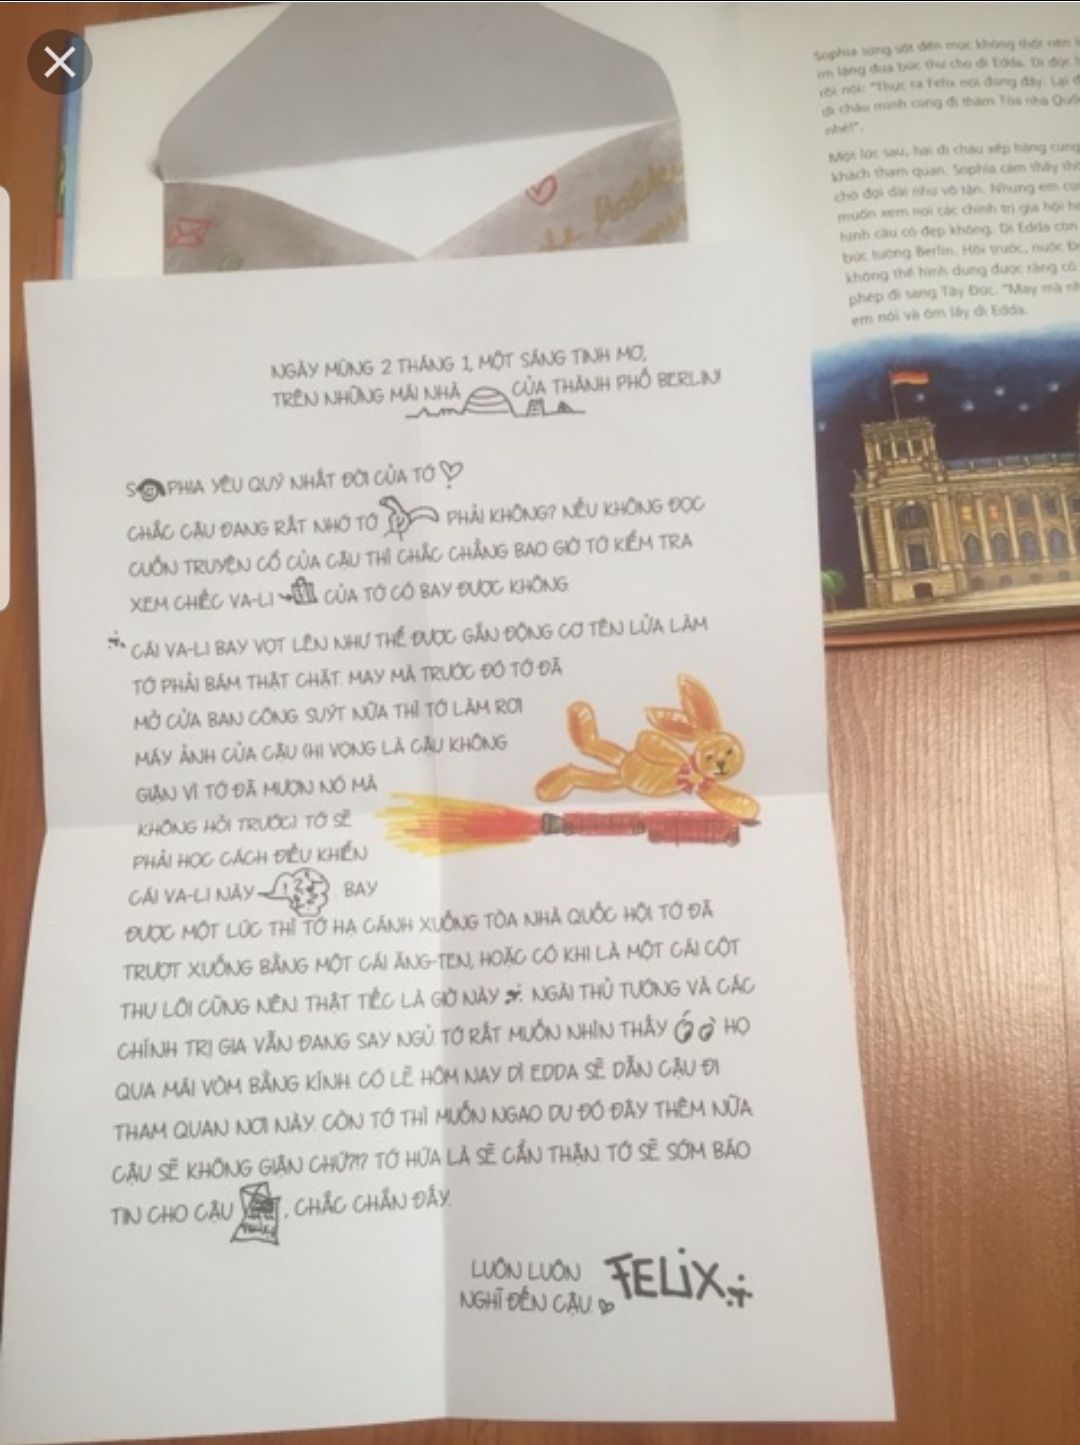 Sophia sững sờ đến mức không thốt nên
im lặng đưa bức thư cho dì Edda. Dì đọc
rồi nói: "Thực ra Felix nói đúng đấy. Lại
dì cháu mình cùng đi thăm Tòa nhà Quốc
nhé!".
Một lúc sau, hai dì cháu xếp hàng cùng
khách tham quan. Sophia cảm thấy
chờ đợi dài như vô tận. Nhưng em
muốn xem nơi các chính trị gia hội
hình cầu có đẹp không. Dì Edda còn
bức tường Berlin. Hồi trước, nước
không thể hình dung được rằng có
phép đi sang Tây Đức. "May mà
em nói và ôm lấy dì Edda.
NGÀY MÙNG 2 THÁNG 1, MỘT SÁNG TINH MƠ,
TRÊN NHỮNG MÁI NHÀ CỦA THÀNH PHỐ BERLIN!
SOPHIA YÊU QUÝ NHẤT ĐỜI CỦA TỚ
CHẮC CẬU ĐANG RẤT NHỚ TỚ PHẢI KHÔNG? NẾU KHÔNG ĐỌC
CUỐN TRUYỆN CỔ CỦA CẬU THÌ CHẮC CHẲNG BAO GIỜ TỚ KIỂM TRA
XEM CHIẾC VA-LI CỦA TỚ CÓ BAY ĐƯỢC KHÔNG
CÁI VA-LI BAY VỌT LÊN NHƯ THỂ ĐƯỢC GẮN ĐỘNG CƠ TÊN LỬA LÀM
TỚ PHẢI BÁM THẬT CHẶT. MAY MÀ TRƯỚC ĐÓ TỚ ĐÃ
MỞ CỬA BAN CÔNG SUÝT NỮA THÌ TỚ LÀM RƠI
MÁY ẢNH CỦA CẬU (HI VỌNG LÀ CẬU KHÔNG
GIẬN VÌ TỚ ĐÃ MƯỢN NÓ MÀ
KHÔNG HỎI TRƯỚC). TỚ SẼ
PHẢI HỌC CÁCH ĐIỀU KHIỂN
CÁI VA-LI NÀY BAY
ĐƯỢC MỘT LÚC THÌ TỚ HẠ CÁNH XUỐNG TÒA NHÀ QUỐC HỘI. TỚ ĐÃ
TRƯỢT XUỐNG BẰNG MỘT CÁI ĂNG-TEN, HOẶC CÓ KHI LÀ MỘT CÁI CỘT
THU LÔI CŨNG NÊN. THẬT TIẾC LÀ GIỜ NÀY NGÀI THỦ TƯỚNG VÀ CÁC
CHÍNH TRỊ GIA VẪN ĐANG SAY NGỦ. TỚ RẤT MUỐN NHÌN THẤY HỌ
QUA MÁI VÒM BẰNG KÍNH. CÓ LẼ HÔM NAY DÌ EDDA SẼ DẪN CẬU ĐI
THAM QUAN NƠI NÀY. CÒN TỚ THÌ MUỐN NGAO DU ĐÓ ĐÂY THÊM NỮA
CẬU SẼ KHÔNG GIẬN CHỨ?!? TỚ HỨA LÀ SẼ CẨN THẬN. TỚ SẼ SỚM BÁO
TIN CHO CẬU, CHẮC CHẮN ĐẤY.
LUÔN LUÔN
NGHĨ ĐẾN CẬU. FELIX